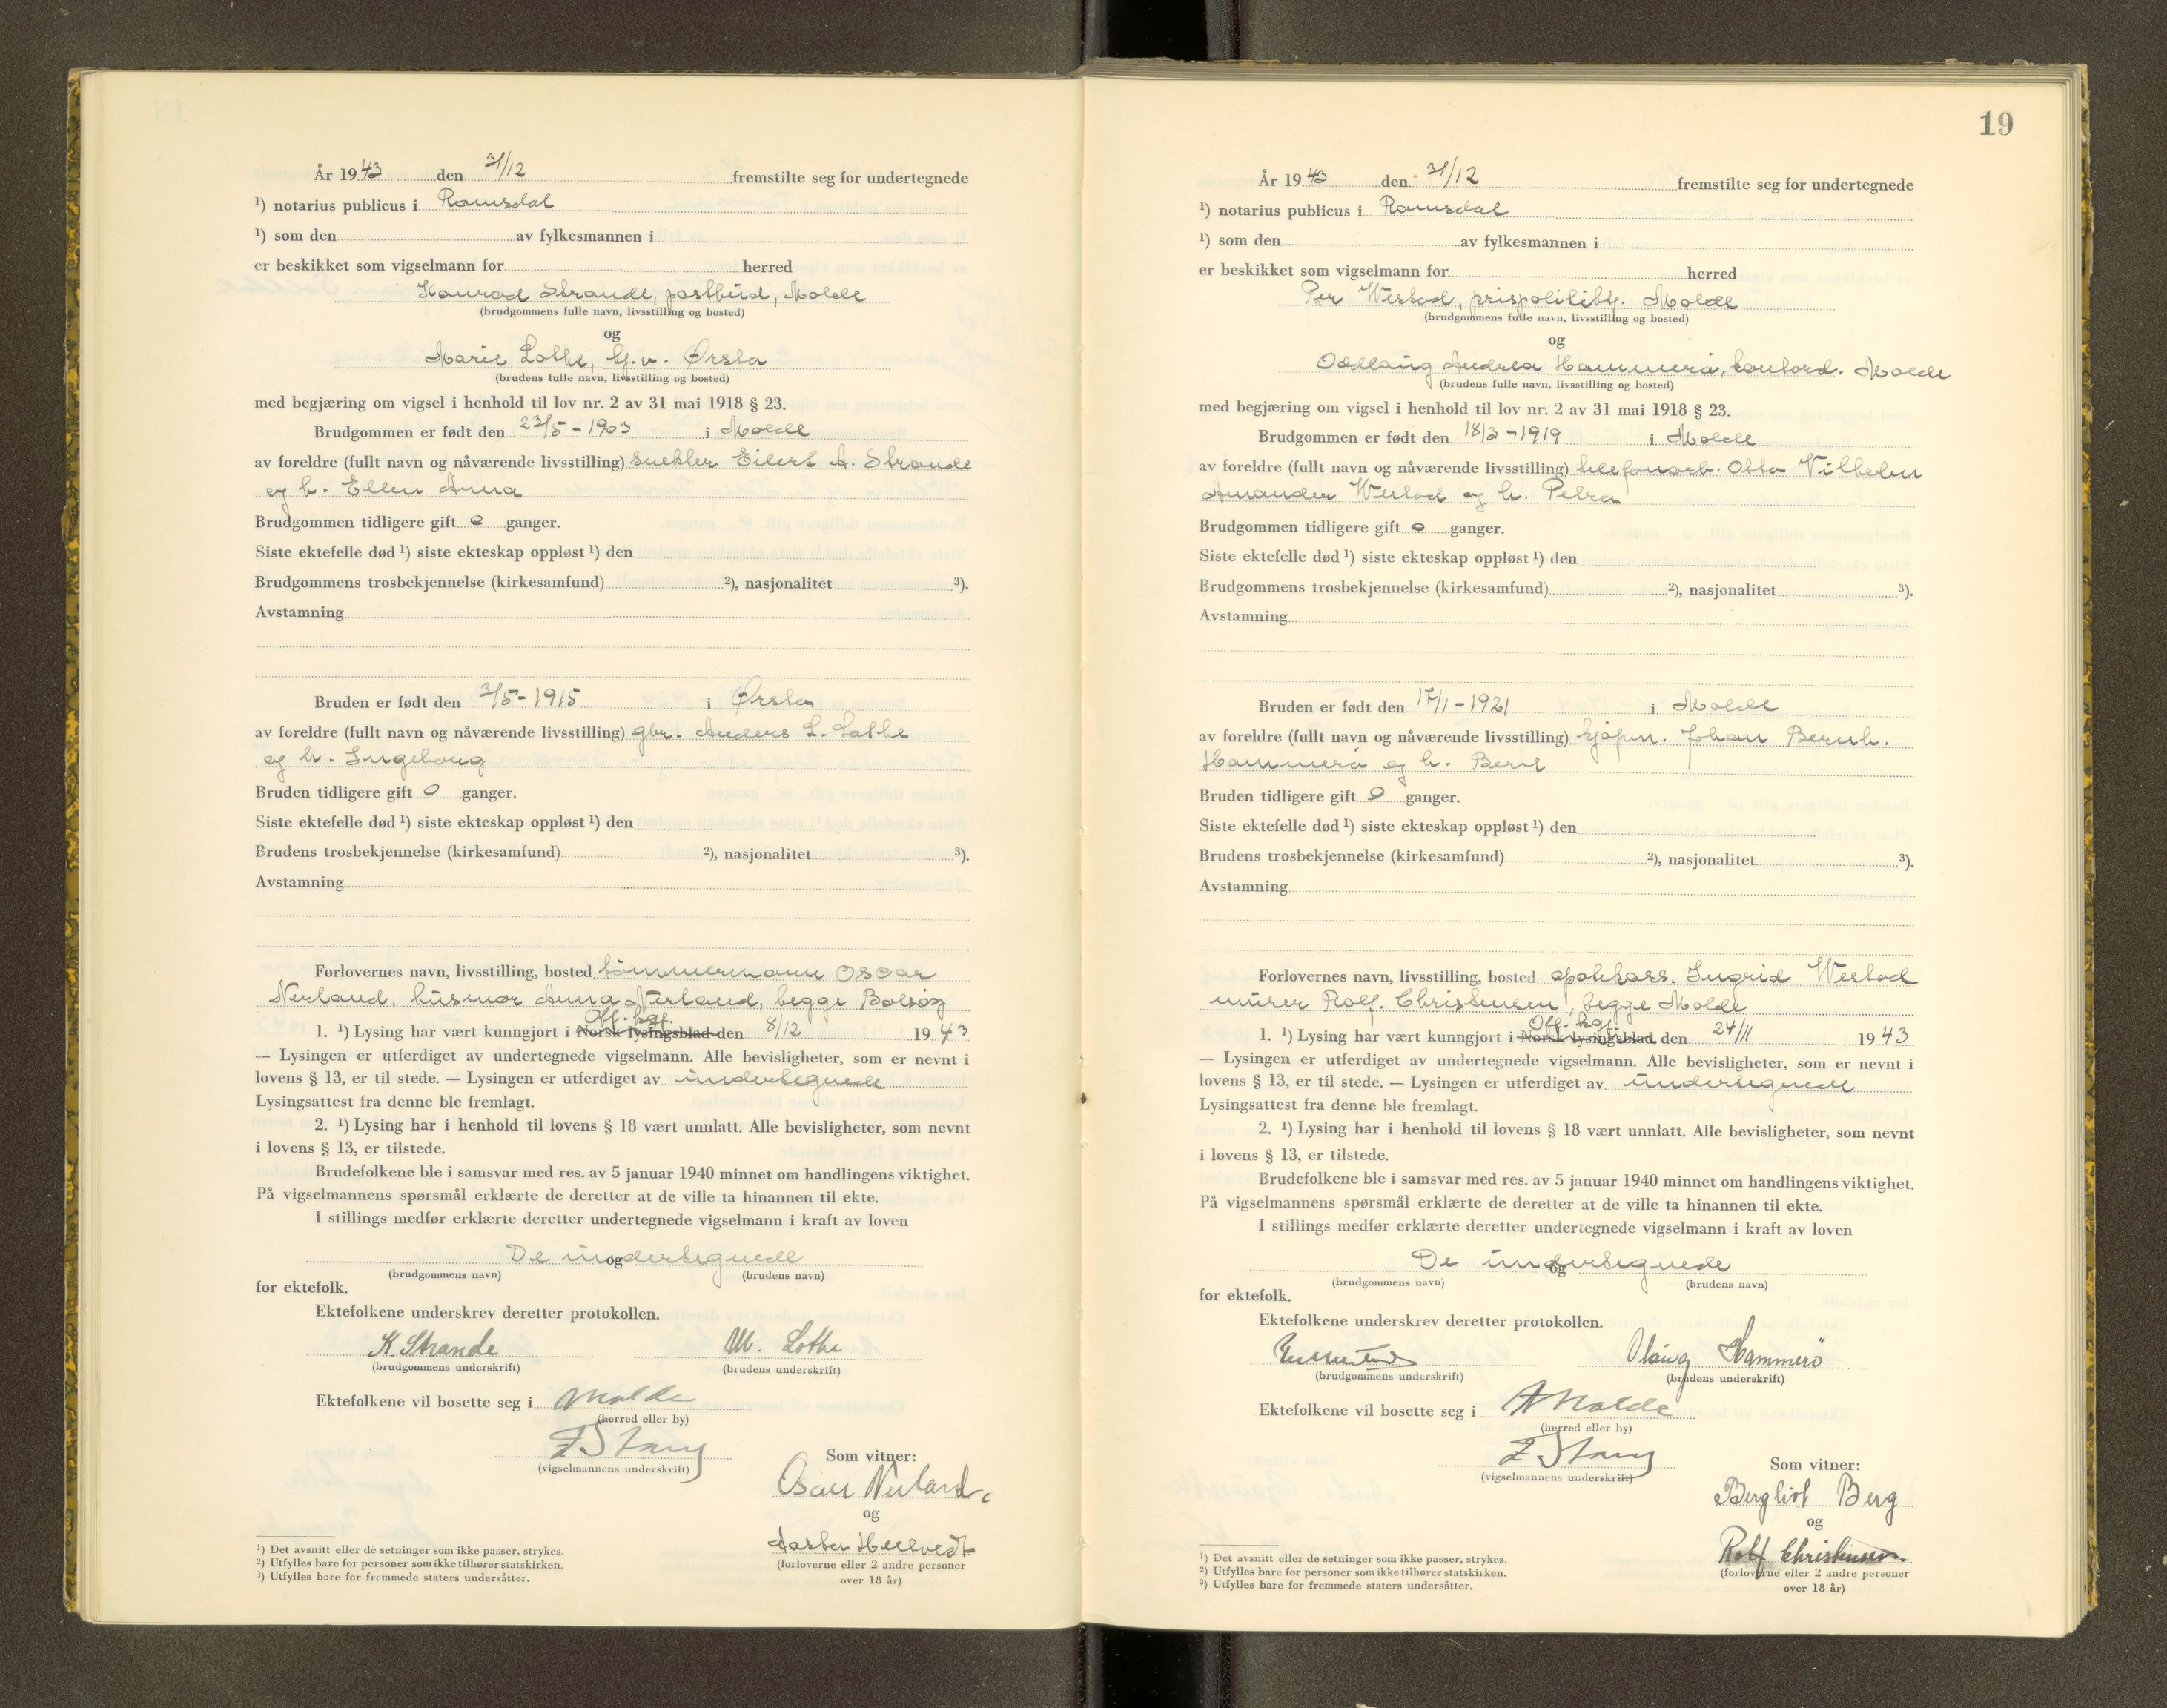 År 1943 den 31/12 fremstilte seg for undertegnede
¹) notarius publicus i Romsdal
¹) som den av fylkesmannen i
er beskikket som vigselmann for herred
Konrad Strande, postbud, Molde
(brudgommens fulle navn, livsstilling og bosted)
og
Marie Lothe, Ørsta
(brudens fulle navn, livsstilling og bosted)
med begjæring om vigsel i henhold til lov nr. 2 av 31 mai 1918 § 23.
Brudgommen er født den 23/5-1903 i Molde
av foreldre (fullt navn og nåværende livsstilling) snekker Eilert A. Strande
og h. Ellen Anna
Brudgommen tidligere gift 0 ganger.
Siste ektefelle død ¹) siste ekteskap oppløst ¹) den
Brudgommens trosbekjennelse (kirkesamfund) ²), nasjonalitet ³).
Avstamning
Bruden er født den 3/5-1915 i Ørsta
av foreldre (fullt navn og nåværende livsstilling) gbr. Anders L. Lothe
og h. Ingeborg
Bruden tidligere gift 0 ganger.
Siste ektefelle død ¹) siste ekteskap oppløst ¹) den
Brudens trosbekjennelse (kirkesamfund) ²), nasjonalitet ³).
Avstamning
Forlovernes navn, livsstilling, bosted tømmermann Oscar
Nerland, husmor Anna Nerland, begge Bolsøy
Off. kgj.
1. ¹) Lysing har vært kunngjort i Norsk lysingsblad den 8/12 1943
— Lysingen er utferdiget av undertegnede vigselmann. Alle bevisligheter, som er nevnt i
lovens § 13, er til stede. — Lysingen er utferdiget av undertegnede
Lysingsattest fra denne ble fremlagt.
2. ¹) Lysing har i henhold til lovens § 18 vært unnlatt. Alle bevisligheter, som nevnt
i lovens § 13, er tilstede.
Brudefolkene ble i samsvar med res. av 5 januar 1940 minnet om handlingens viktighet.
På vigselmannens spørsmål erklærte de deretter at de ville ta hinannen til ekte.
I stillings medfør erklærte deretter undertegnede vigselmann i kraft av loven
De undertegnede
og
(brudgommens navn) (brudens navn)
for ektefolk.
Ektefolkene underskrev deretter protokollen.
K. Strande M. Lothe
(brudgommens underskrift) (brudens underskrift)
Ektefolkene vil bosette seg i Molde
(herred eller by)
(vigselmannens underskrift)
Som vitner:
Oscar Nerland.
og
(forloverne eller 2 andre personer
over 18 år)
¹) Det avsnitt eller de setninger som ikke passer, strykes.
²) Utfylles bare for personer som ikke tilhører statskirken.
³) Utfylles bare for fremmede staters undersåtter.
19
År 1943 den 31/12 fremstilte seg for undertegnede
¹) notarius publicus i Romsdal
¹) som den av fylkesmannen i
er beskikket som vigselmann for herred
Per Westad, Molde
(brudgommens fulle navn, livsstilling og bosted)
og
Oddlaug Andrea Hammerö, kontord. Molde
(brudens fulle navn, livsstilling og bosted)
med begjæring om vigsel i henhold til lov nr. 2 av 31 mai 1918 § 23.
Brudgommen er født den 18/3-1919 i Molde
av foreldre (fullt navn og nåværende livsstilling) telefonarb. Otto Vilhelm
Amandus Westad og h. Petra
Brudgommen tidligere gift 0 ganger.
Siste ektefelle død ¹) siste ekteskap oppløst ¹) den
Brudgommens trosbekjennelse (kirkesamfund) ²), nasjonalitet ³).
Avstamning
Bruden er født den 17/1-1921 i Molde
av foreldre (fullt navn og nåværende livsstilling) kjøpm. Johan Bernh.
Hammerö og h. Berit
Bruden tidligere gift 0 ganger.
Siste ektefelle død ¹) siste ekteskap oppløst ¹) den
Brudens trosbekjennelse (kirkesamfund) ²), nasjonalitet ³).
Avstamning
Forlovernes navn, livsstilling, bosted Ingrid Westad
murer Rolf Christensen, begge Molde
Off. kgj.
1. ¹) Lysing har vært kunngjort i Norsk lysingsblad den 24/11 1943
— Lysingen er utferdiget av undertegnede vigselmann. Alle bevisligheter, som er nevnt i
lovens § 13, er til stede. — Lysingen er utferdiget av undertegnede
Lysingsattest fra denne ble fremlagt.
2. ¹) Lysing har i henhold til lovens § 18 vært unnlatt. Alle bevisligheter, som nevnt
i lovens § 13, er tilstede.
Brudefolkene ble i samsvar med res. av 5 januar 1940 minnet om handlingens viktighet.
På vigselmannens spørsmål erklærte de deretter at de ville ta hinannen til ekte.
I stillings medfør erklærte deretter undertegnede vigselmann i kraft av loven
De undertegnede
og
(brudgommens navn) (brudens navn)
for ektefolk.
Ektefolkene underskrev deretter protokollen.
Hammerö
(brudgommens underskrift) (brudens underskrift)
Ektefolkene vil bosette seg i Molde
(herred eller by)
(vigselmannens underskrift)
Som vitner:
Bergliot Berg
og
Rolf Christensen
(forloverne eller 2 andre personer
over 18 år)
¹) Det avsnitt eller de setninger som ikke passer, strykes.
²) Utfylles bare for personer som ikke tilhører statskirken.
³) Utfylles bare for fremmede staters undersåtter.